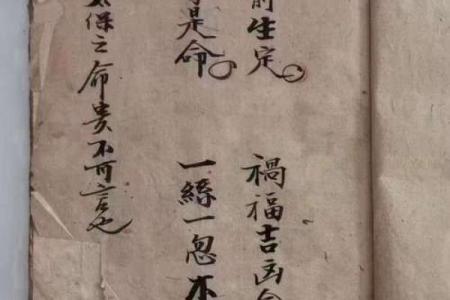 前生定 禍福吉凶
是命 一絲一忽不
太保之命貴不可言也